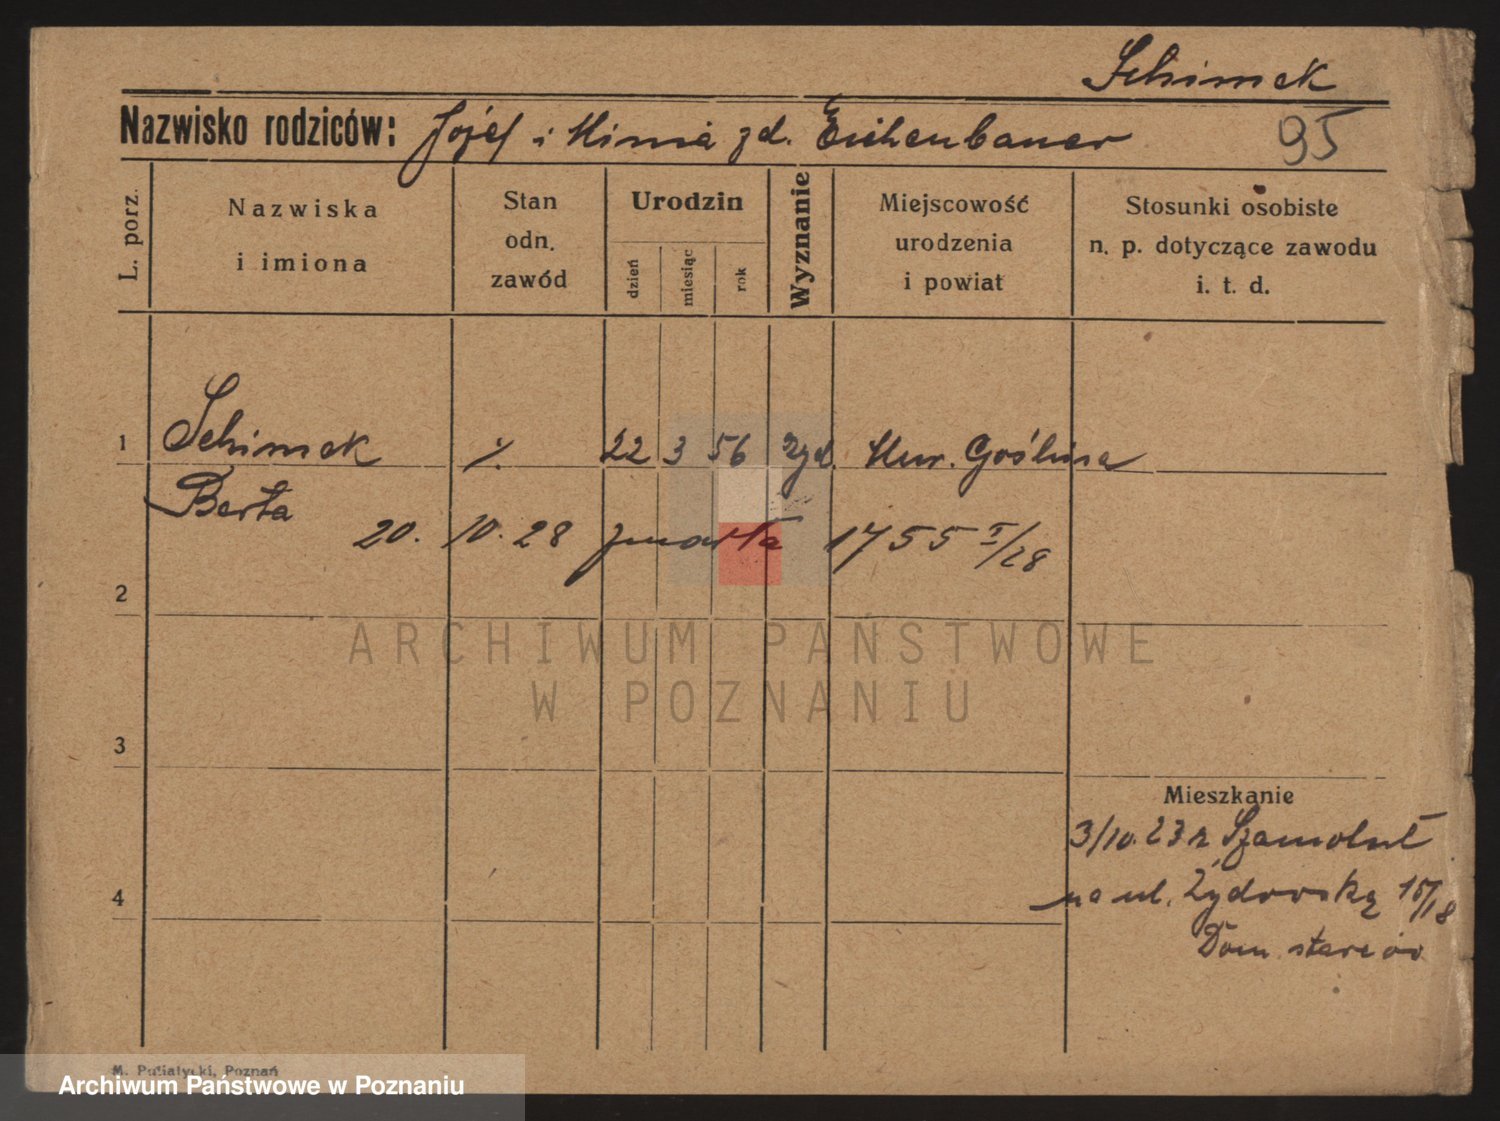 Schimek
Nazwisko rodziców: Józef i Minna zd. Eichenbauer 95
L. porz.
Nazwiska
i imiona
Stan
odn.
zawód
Urodzin
dzień
miesiąc
rok
Wyznanie
Miejscowość
urodzenia
i powiat
Stosunki osobiste
n. p. dotyczące zawodu
i. t. d.
1 Schimek ./. 22 3 56 żyd. Mur. Goślina
Berta
20. 10. 28 zmarła 1755 I/28
2
ARCHIWUM PAŃSTWOWE
W POZNANIU
3
Mieszkanie
3/10. 23 z Szamotuł
4
na ul. Żydowską 15/18
Dom starców
M. Putiatycki, Poznań
Archiwum Państwowe w Poznaniu